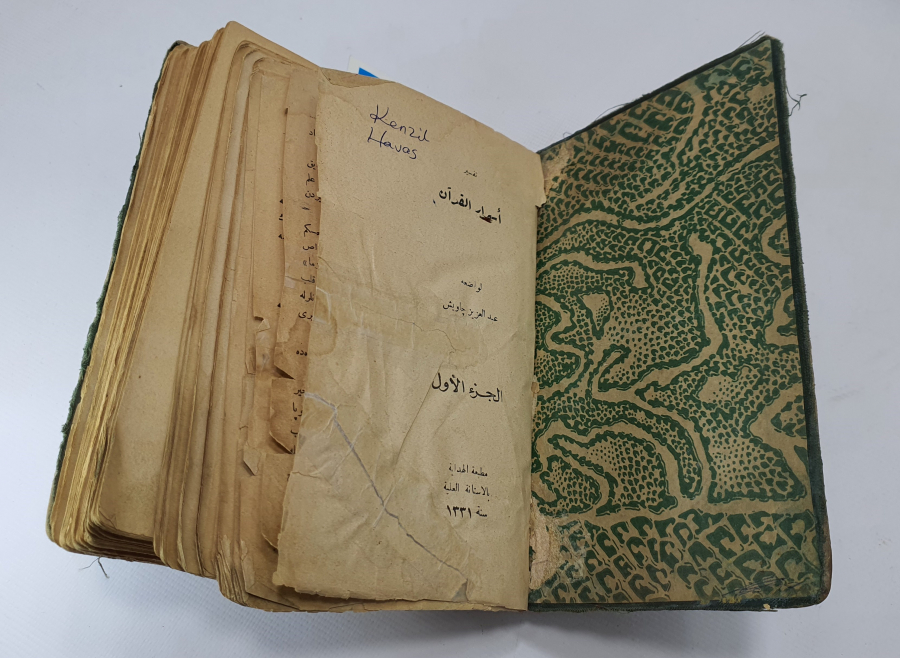 Kenzil
Havas
تفسير
أسرار القرآن
لواضعه
عبد العزيز جاويش
الجزء الأول
مطبعة الهداية
بالاستانة العلية
سنة ١٣٣١